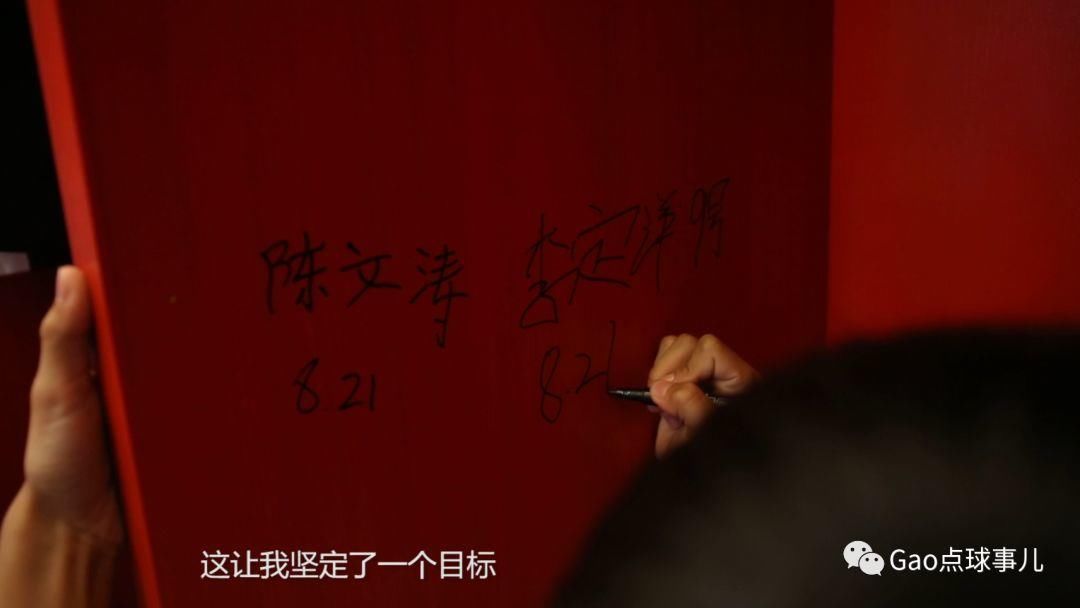 陈文涛 李定洋明
8.21 8.21
这让我坚定了一个目标
Gao点球事儿